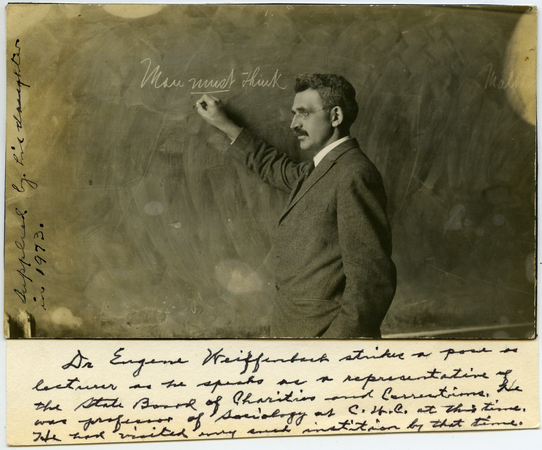 Man must think
Supplied by his daughter
in 1973.
Dr Eugene Weiffenbach strikes a pose as
lecturer as he speaks as a representative of
the State Board of Charities and Corrections. He
was professor of Sociology at at this time.
He had visited such institution by that time.